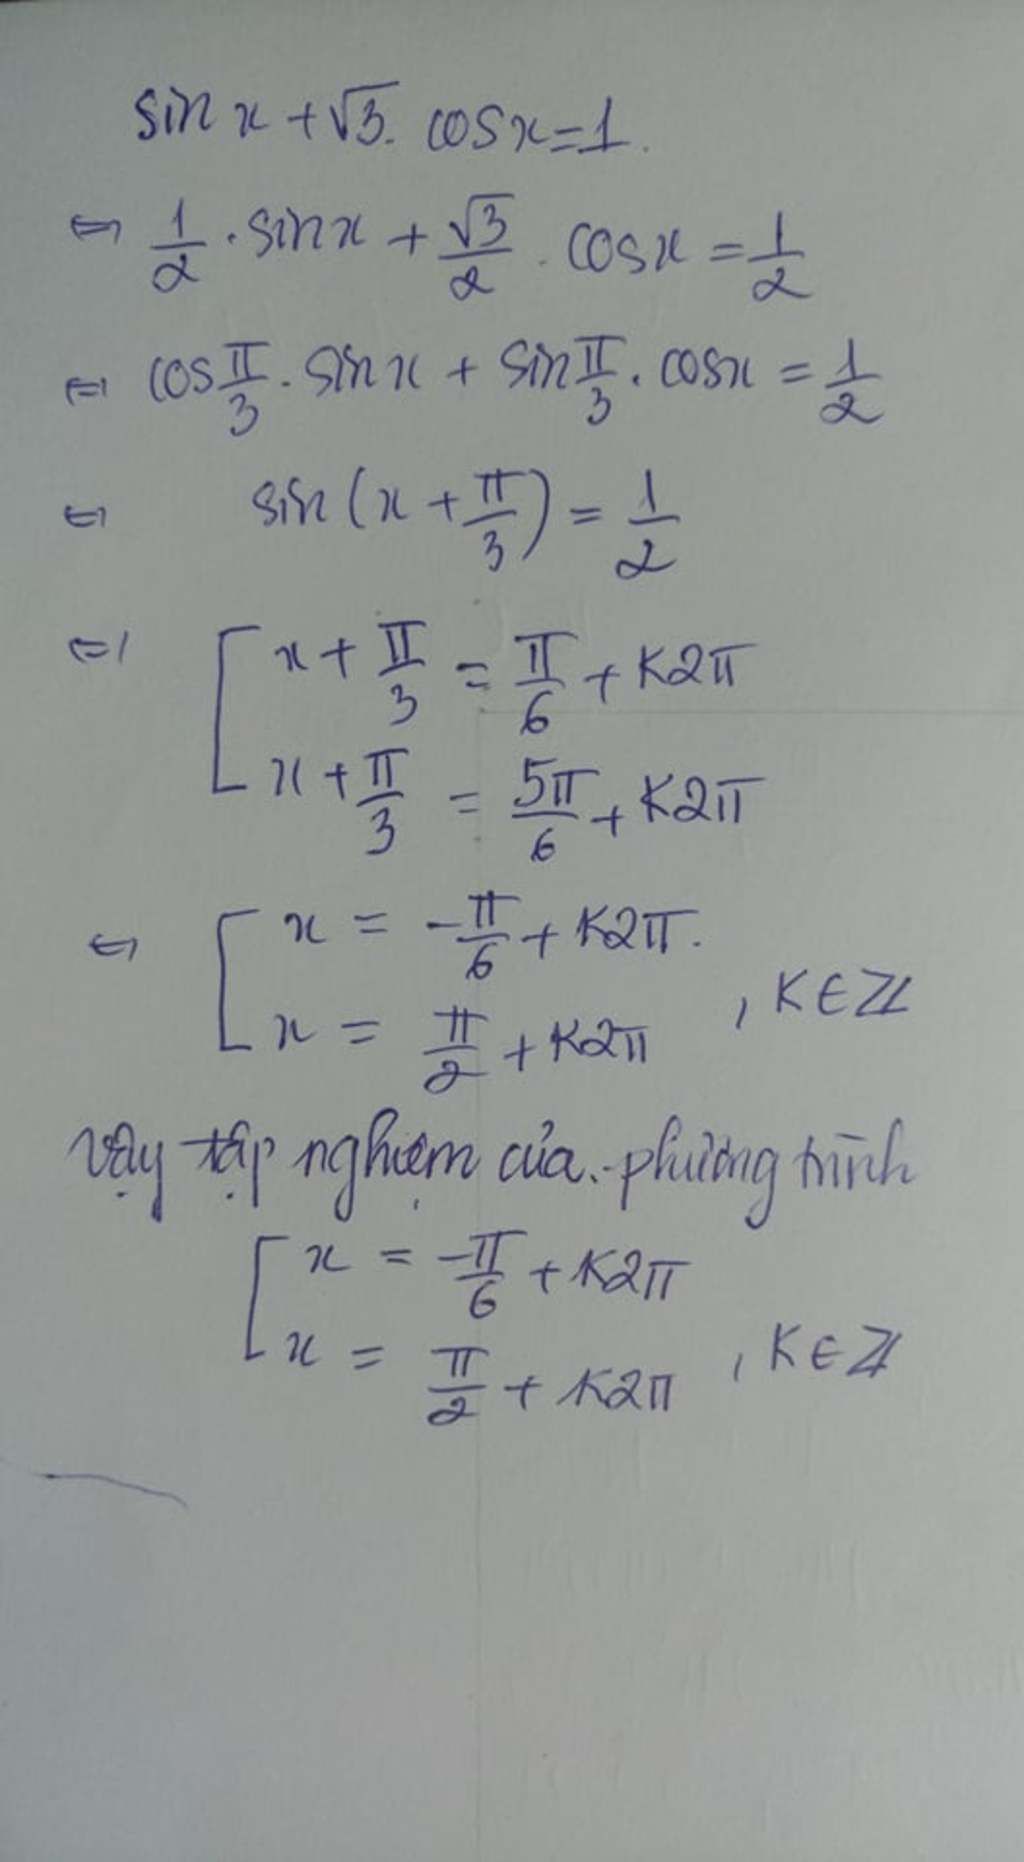 sin x + √3. cosx = 1.
⇔ 1/2 . sinx + √3/2 . cosx = 1/2
⇔ cos π/3 . sinx + sin π/3 . cosx = 1/2
⇔ sin (x + π/3) = 1/2
⇔ [ x + π/3 = π/6 + K2π
x + π/3 = 5π/6 + K2π
⇔ [ x = -π/6 + K2π.
x = π/2 + K2π , K∈Z
Vậy tập nghiệm của phương trình
[ x = -π/6 + K2π
x = π/2 + K2π , K∈Z